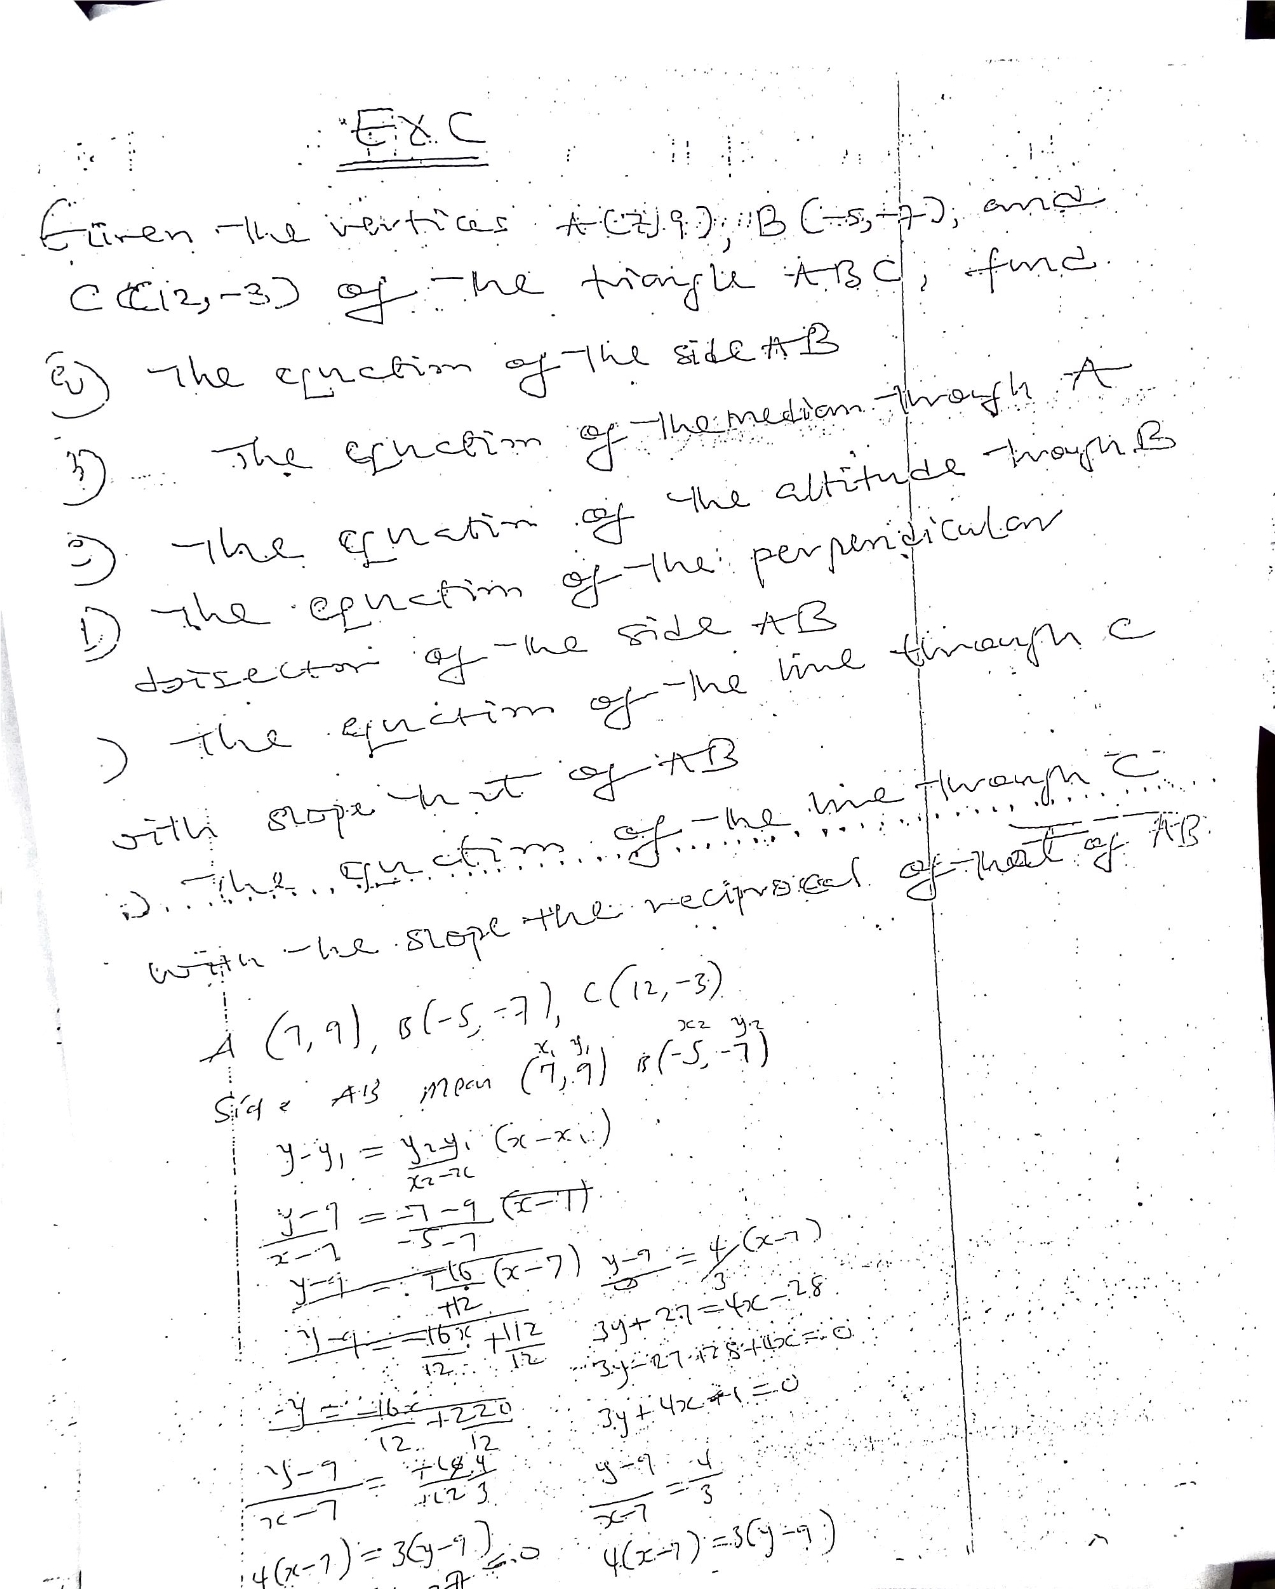 EX.C
Given the vertices A(7,9), B(-5,-7), and
C(12,-3) of the triangle ABC, find
The equation of the side AB
The equation of the median through A
The equation of the altitude through B
The equation of the perpendicular
bisector of the side AB
The equation of the line through C
with slope that of AB
The equation of the line through C
with the slope the reciprocal of that of AB
A (7,9), B(-5,-7), C(12,-3)
x1 y1 x2 y2
Side AB mean (7,9) B(-5,-7)
y-y1 = y2-y1 (x-x1)
x2-x1
y-9 = -7-9 (x-7)
x-7 -5-7
y-9 = +16 (x-7) y-9 = 4 (x-7)
+12 3
y-9 = 16x +112 3y+27=4x-28
12 12 3y-27+28+4x=0
y = -16x +220 3y+4x+1=0
12 12
y-9 = y-9 = 4
x-7 x-7 3
4(x-7)=3(y-9) 4(x-7)=3(y-9)